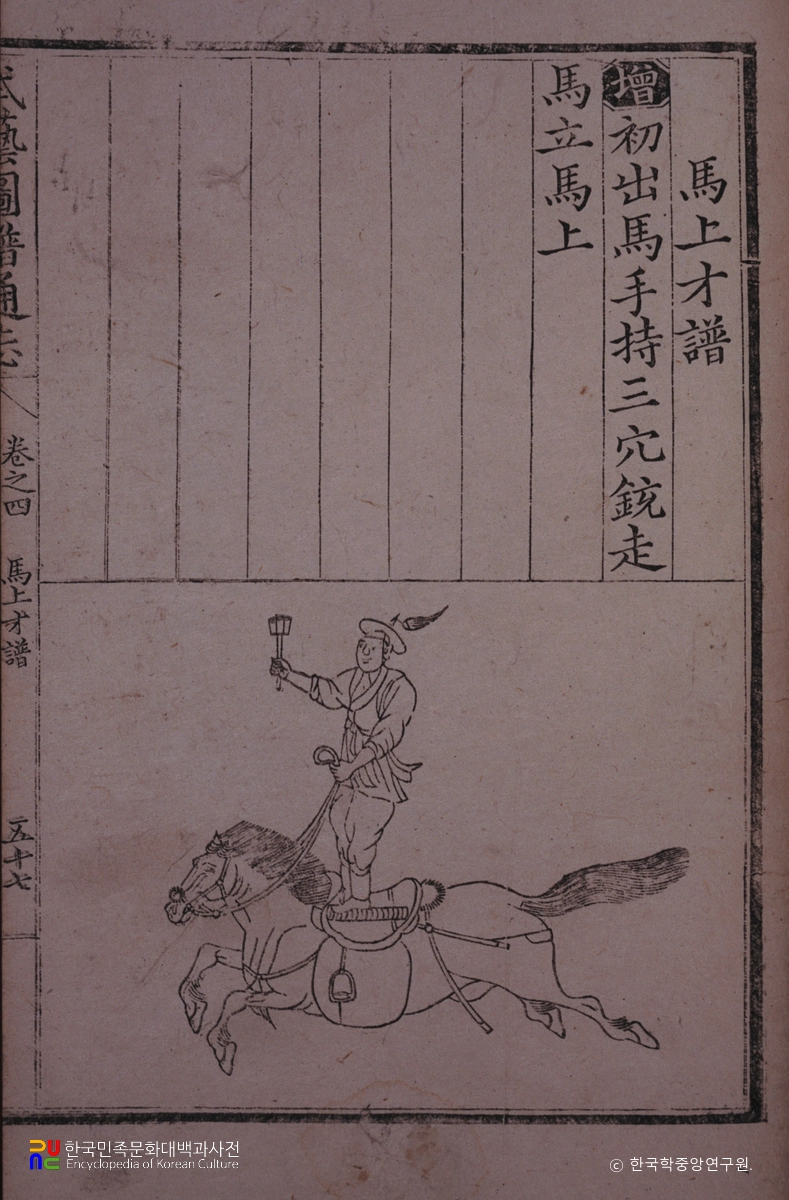 馬上才譜
增初出馬手持三穴銃走
馬立馬上
武藝圖譜通志
卷之四
馬上才譜
五十七
한국민족문화대백과사전
Encyclopedia of Korean Culture
ⓒ 한국학중앙연구원.